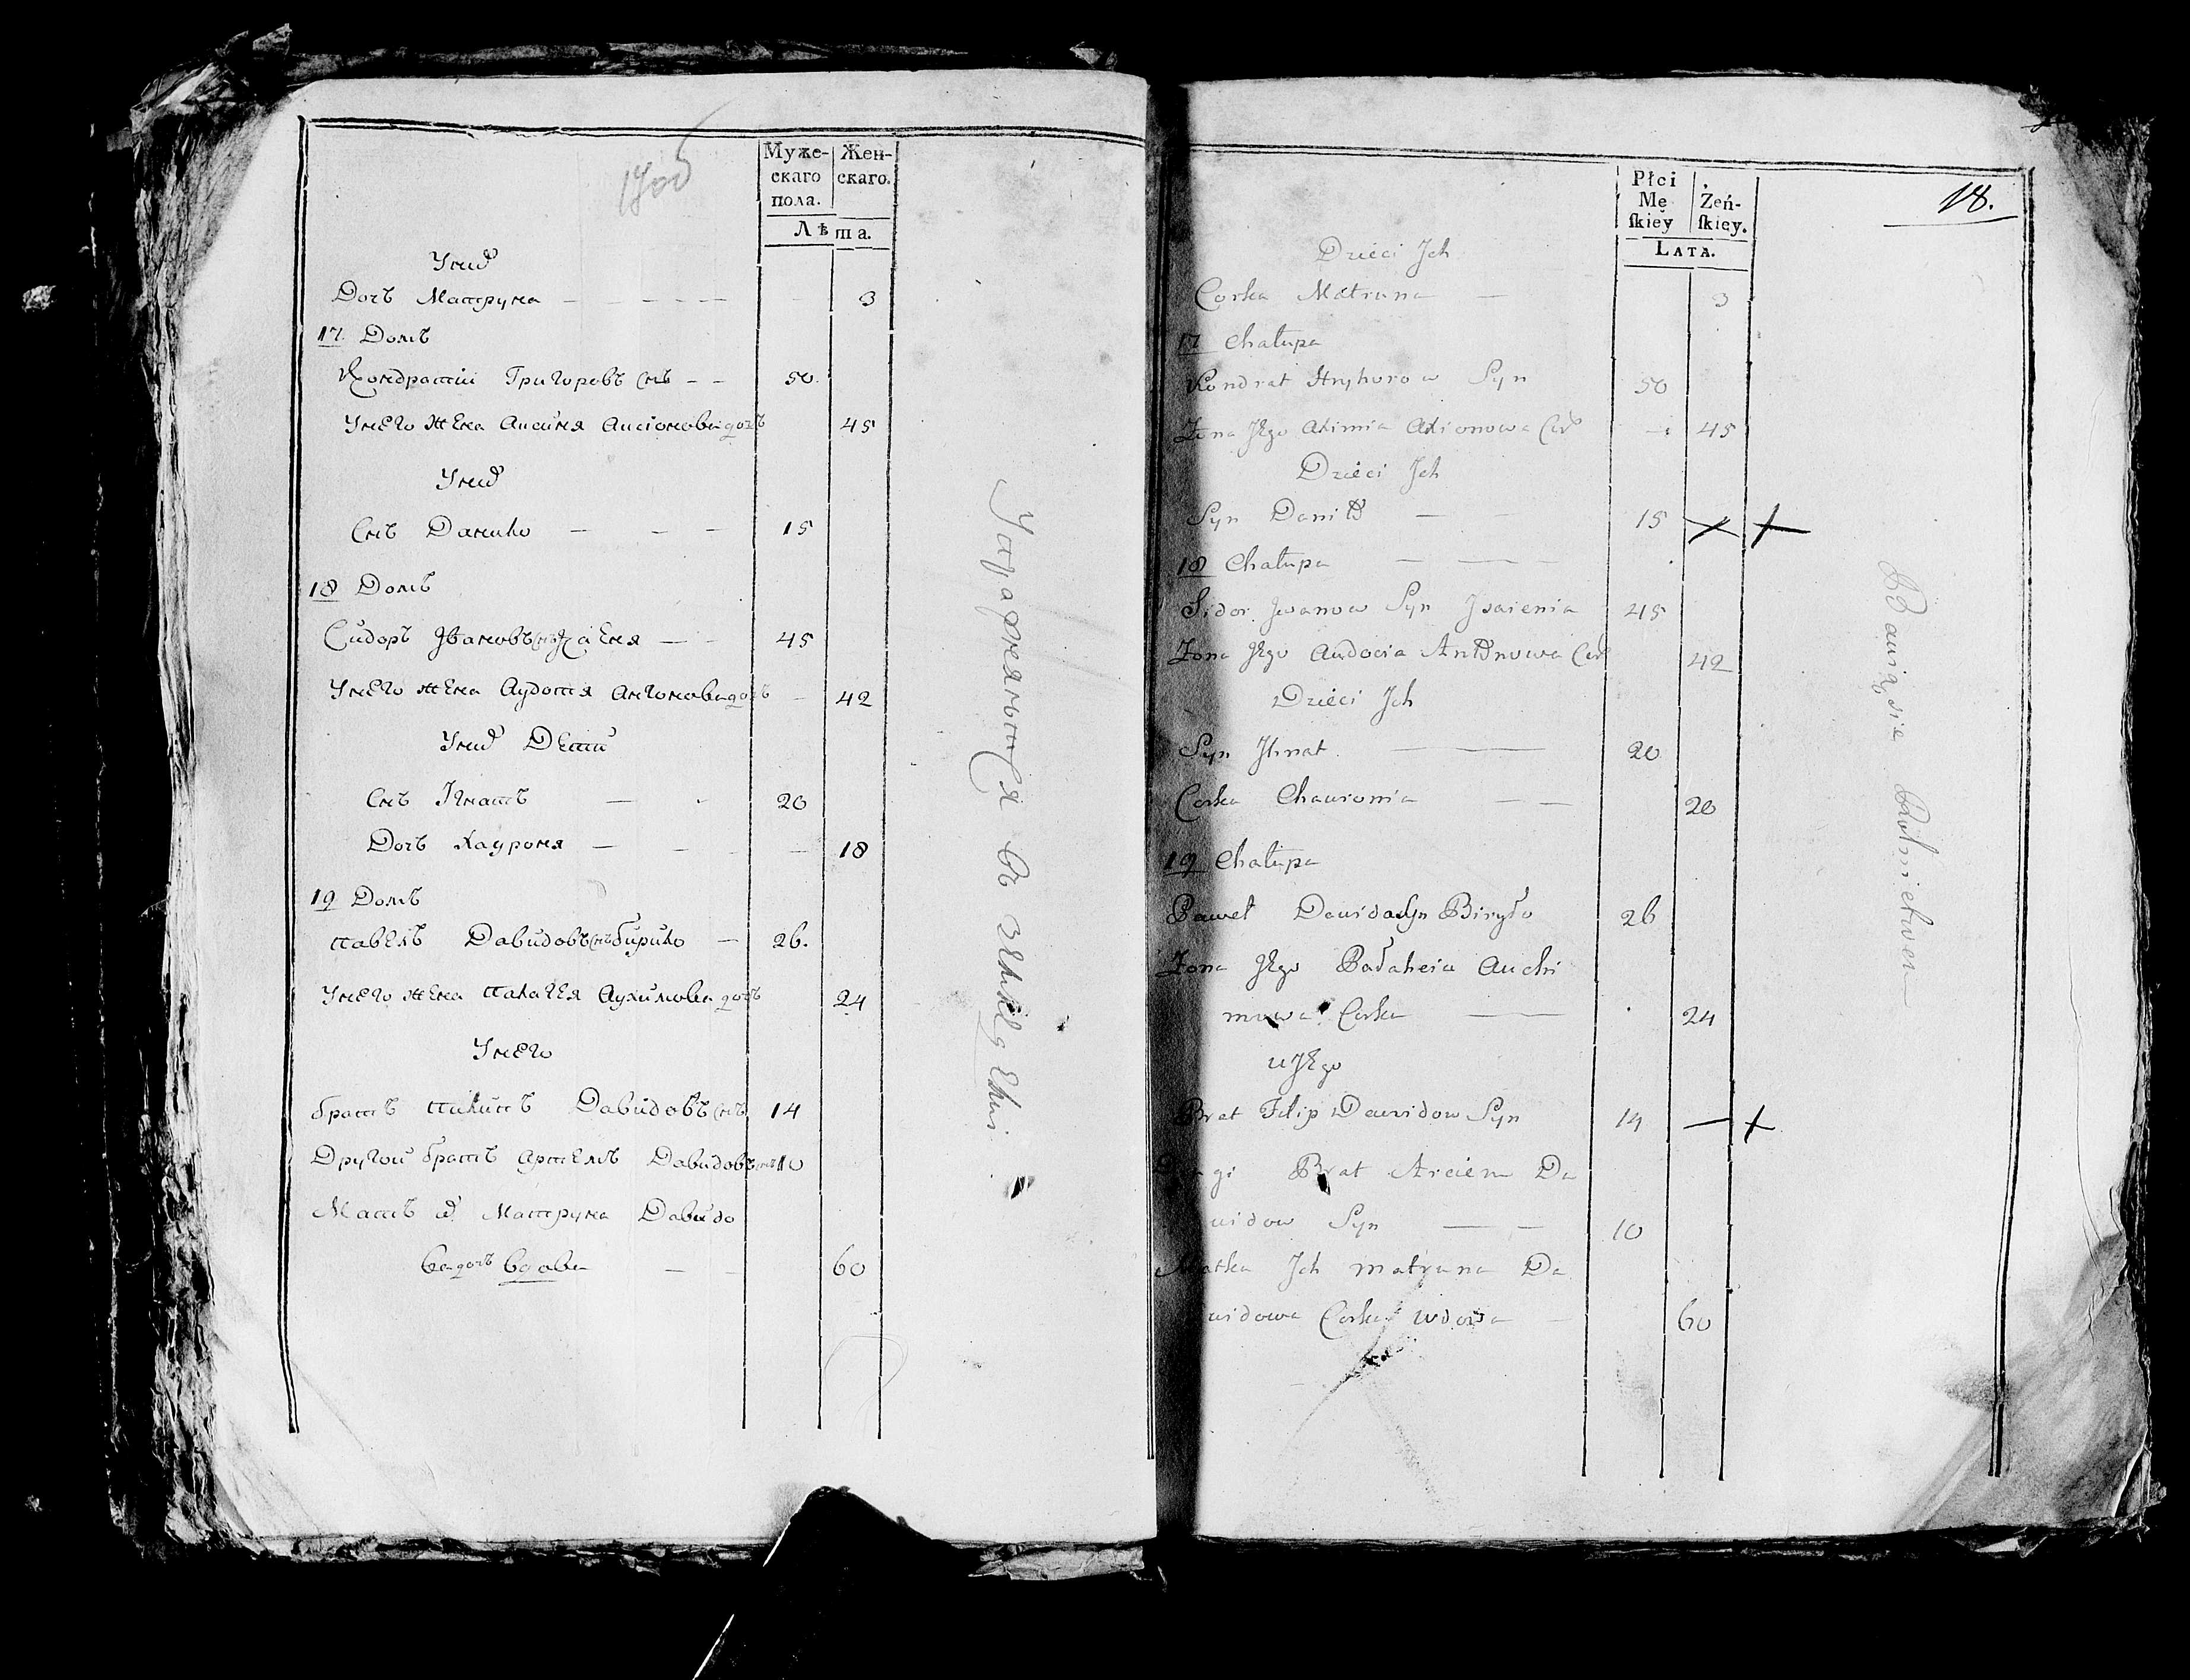 Муже-
скаго
пола.
Жен-
скаго.
Лѣта.
У них
Дочь Матруна 3
17. Домъ
Кондратiй Григоровъ снъ 50.
У него жена Аксиня Аксiонова дочь 45
У них
Снъ Данило 15
18 Домъ
Сидоръ Iвановъ снъ Iсаеня 45
У него жена Аудотя Антонова дочь 42
У них Дети
Снъ Iгнатъ 20
Дочь Хауроня 18
19 Домъ
Павелъ Давидовъ снъ Бирило 26.
У него жена Палагея Аухимова дочь 24
У него
братъ Пилипъ Давидовъ снъ 14
Другой братъ Артемъ Давидовъ снъ 10
Мать их Матруна Давидо
ва дочь вдова 60
Упражняются в земледелии
18.
Płci
Mę
ſkiey
Żeń-
ſkiey.
LATA.
Dzieci Jch
Corka Matruna 3
17 Chałupa
Kondrat Hryhorow Syn 50
Zona Jego Axinia Axionowa Cor 45
Dzieci Jch
Syn Daniło 15
18 Chałupa
Sidor Jwanow Syn Jsaienia 45
Zona Jego Audocia Antonowa Cor 42
Dzieci Jch
Syn Jhnat 20
Corka Chauronia 20
19 Chałupa
Paweł Dawidow Syn Biryło 26
Zona Jego Pałaheia Auchi
mowa Corka 24
u Jego
Brat Filip Dawidow Syn 14
Brat Arciem Da
widow Syn 10
Matka Jch Matruna Da
widowa Corka wdowa 60
Bawią się Rolnictwem